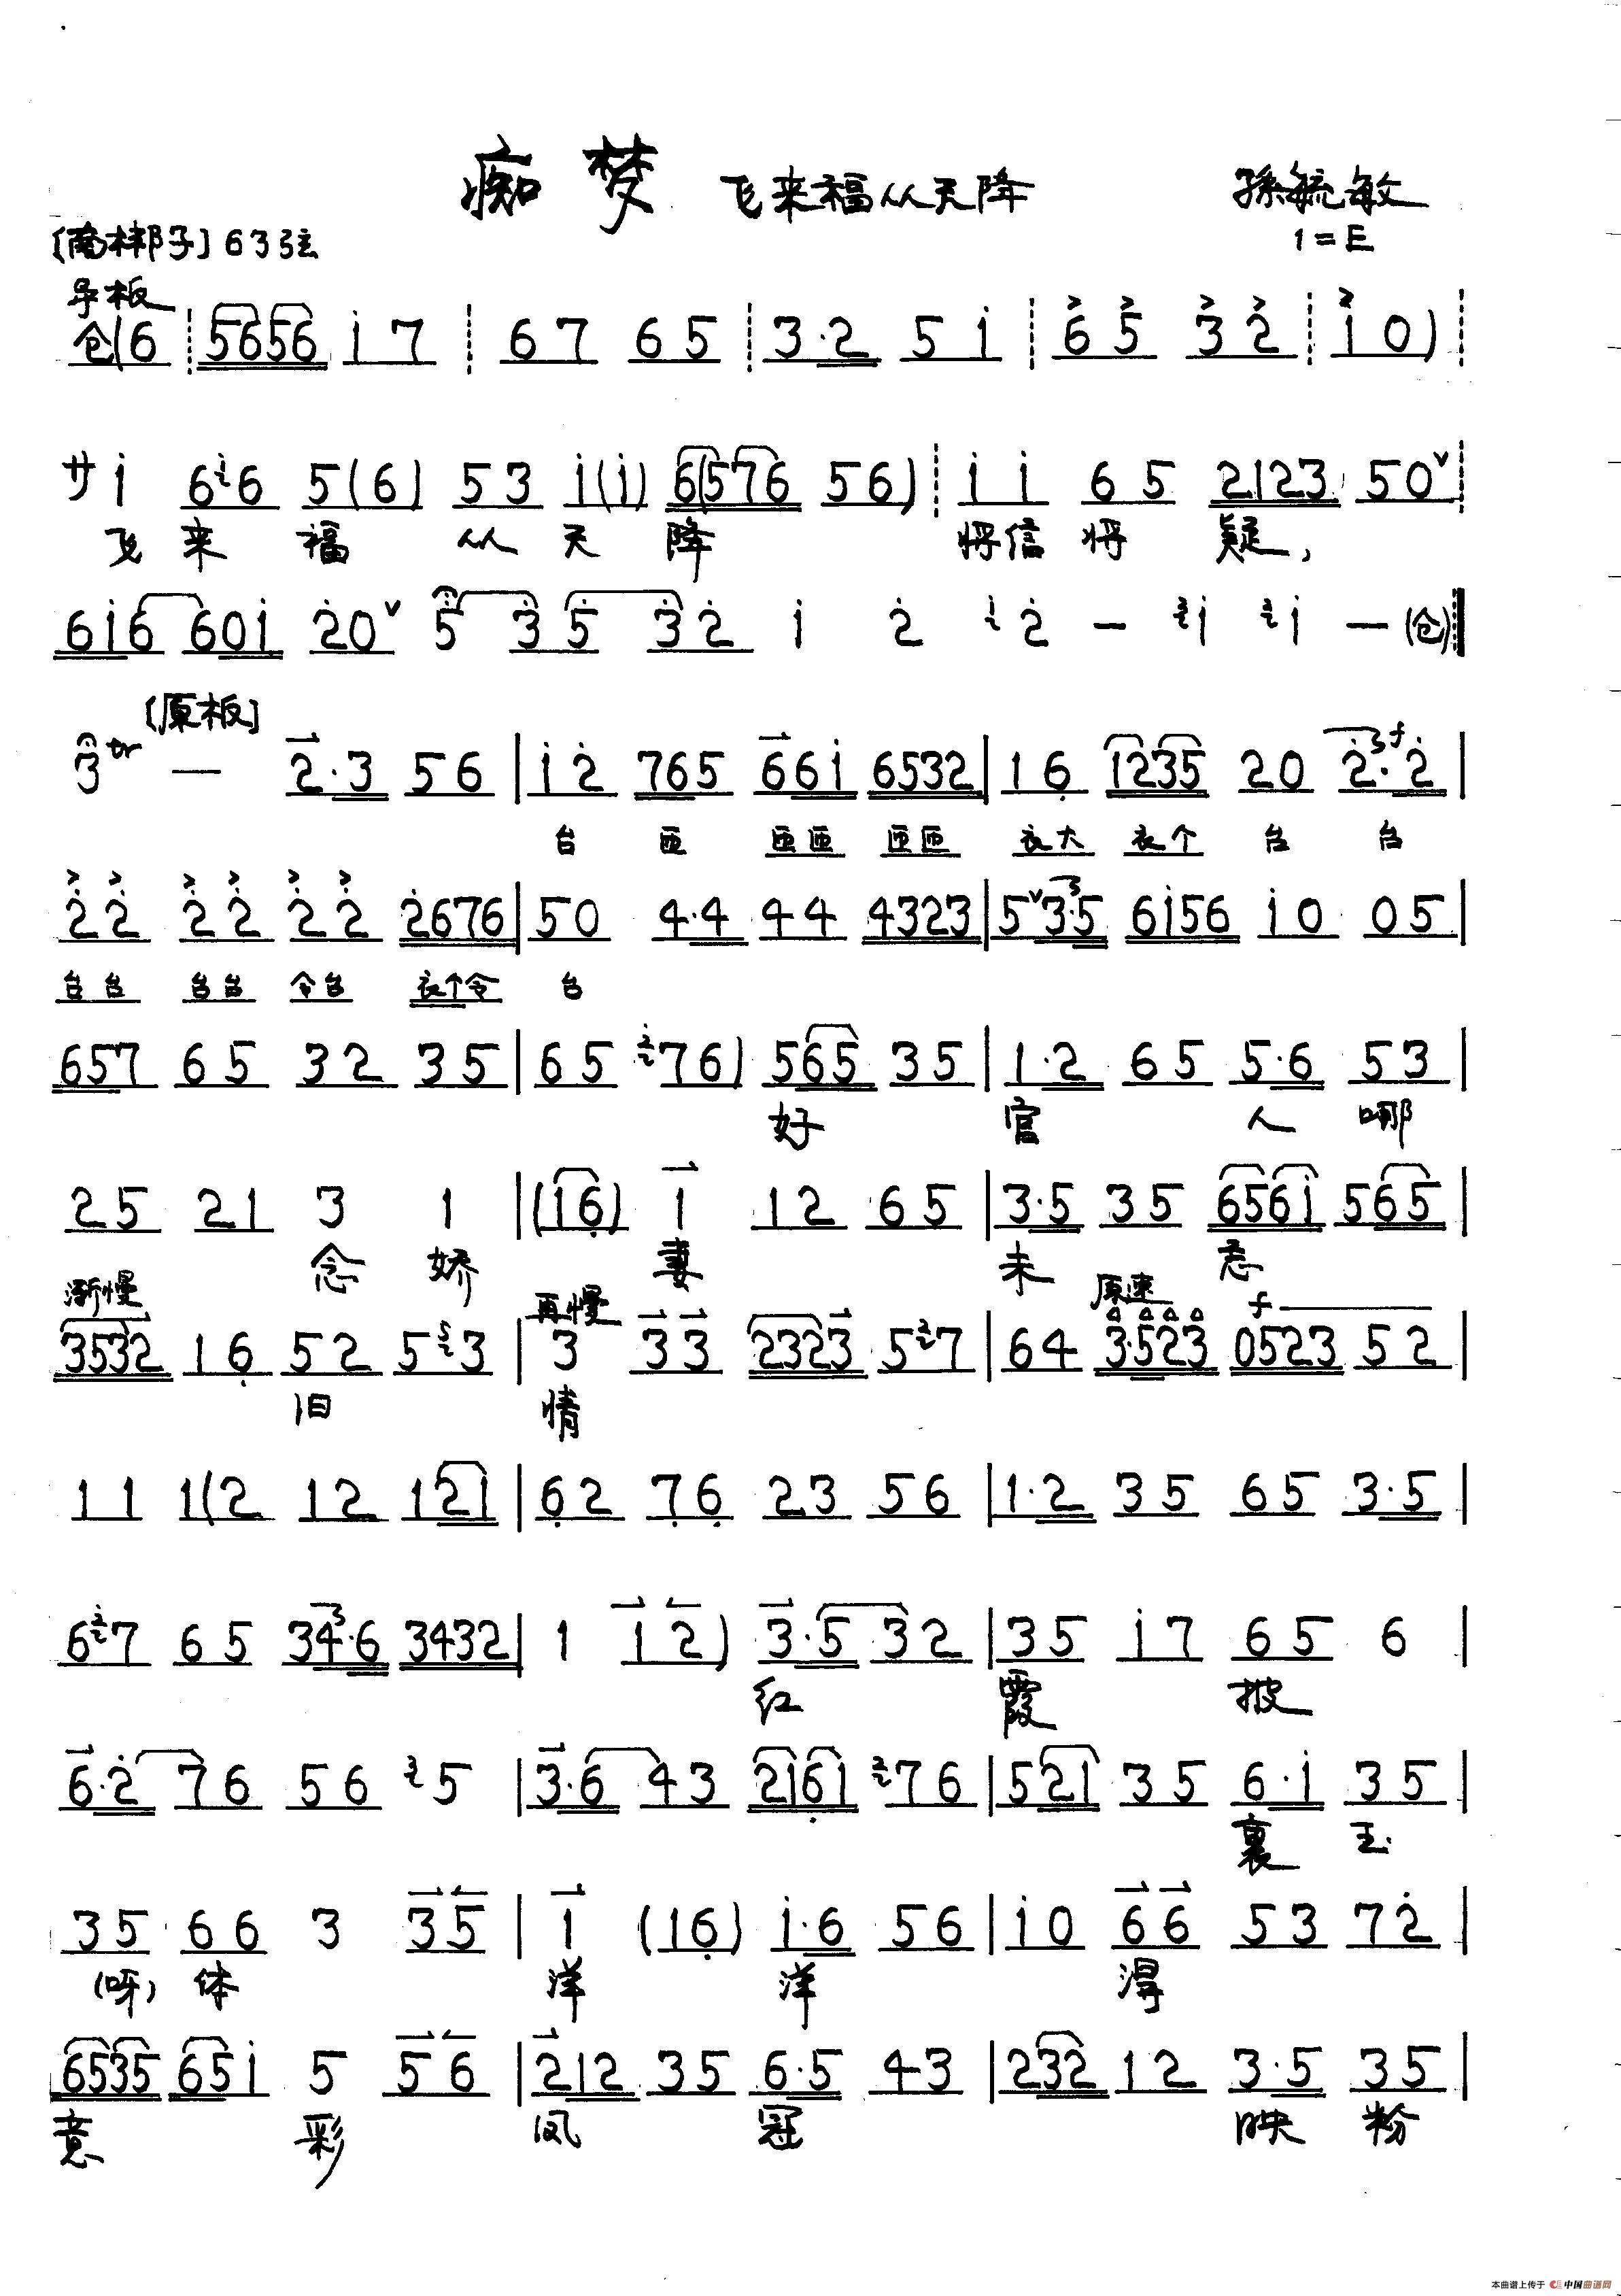 痴梦 飞来福从天降 孫毓敏
〔南梆子〕63弦 1=E
导板
仓(6 5656 i7 67 65 3·2 5i 65 32 i0)
サi 6i6 5(6) 53 i(i) 6(576 56) ii 65 2123 50
飞 来 福 从 天 降 将信 将 疑,
6i6 60i 20 5 3 5 32 i 2 i2 — 2i 2i — (仓)
〔原板〕
3tr — 2·3 56 | i2 765 66i 6532 | 16 1235 20 2·2 |
台 匝 匝匝 匝匝 衣大 衣个 台 台
22 22 22 2676 | 50 4·4 44 4323 | 53·5 6i56 i0 05 |
台台 台台 令台 衣个令 台
657 65 32 35 | 65 276) 565 35 | 1·2 65 5·6 53 |
好 官 人 哪
25 21 3 1 | (16) 1 12 65 | 3·5 35 656i 565 |
念 娇 妻 未 忘
渐慢 再慢 原速 f
3532 16 52 553 | 3 33 2323 527 | 64 3·523 0523 52
旧 情
11 1(2 12 121 | 62 76 23 56 | 1·2 35 65 3·5 |
627 65 34·6 3432 | 1 12) 3·5 32 | 35 i7 65 6 |
红 霞 披
6·2 76 56 25 | 3·6 43 2161 276 | 521 35 6·i 35 |
裹 玉
35 66 3 35 | 1 (16) i·6 56 | i0 66 53 72 |
(呀) 体 洋 洋 得
6535 65i 5 56 | 212 35 6·5 43 | 232 12 3·5 35 |
意 彩 凤 冠 映 粉
本曲谱上传于 中国曲谱网